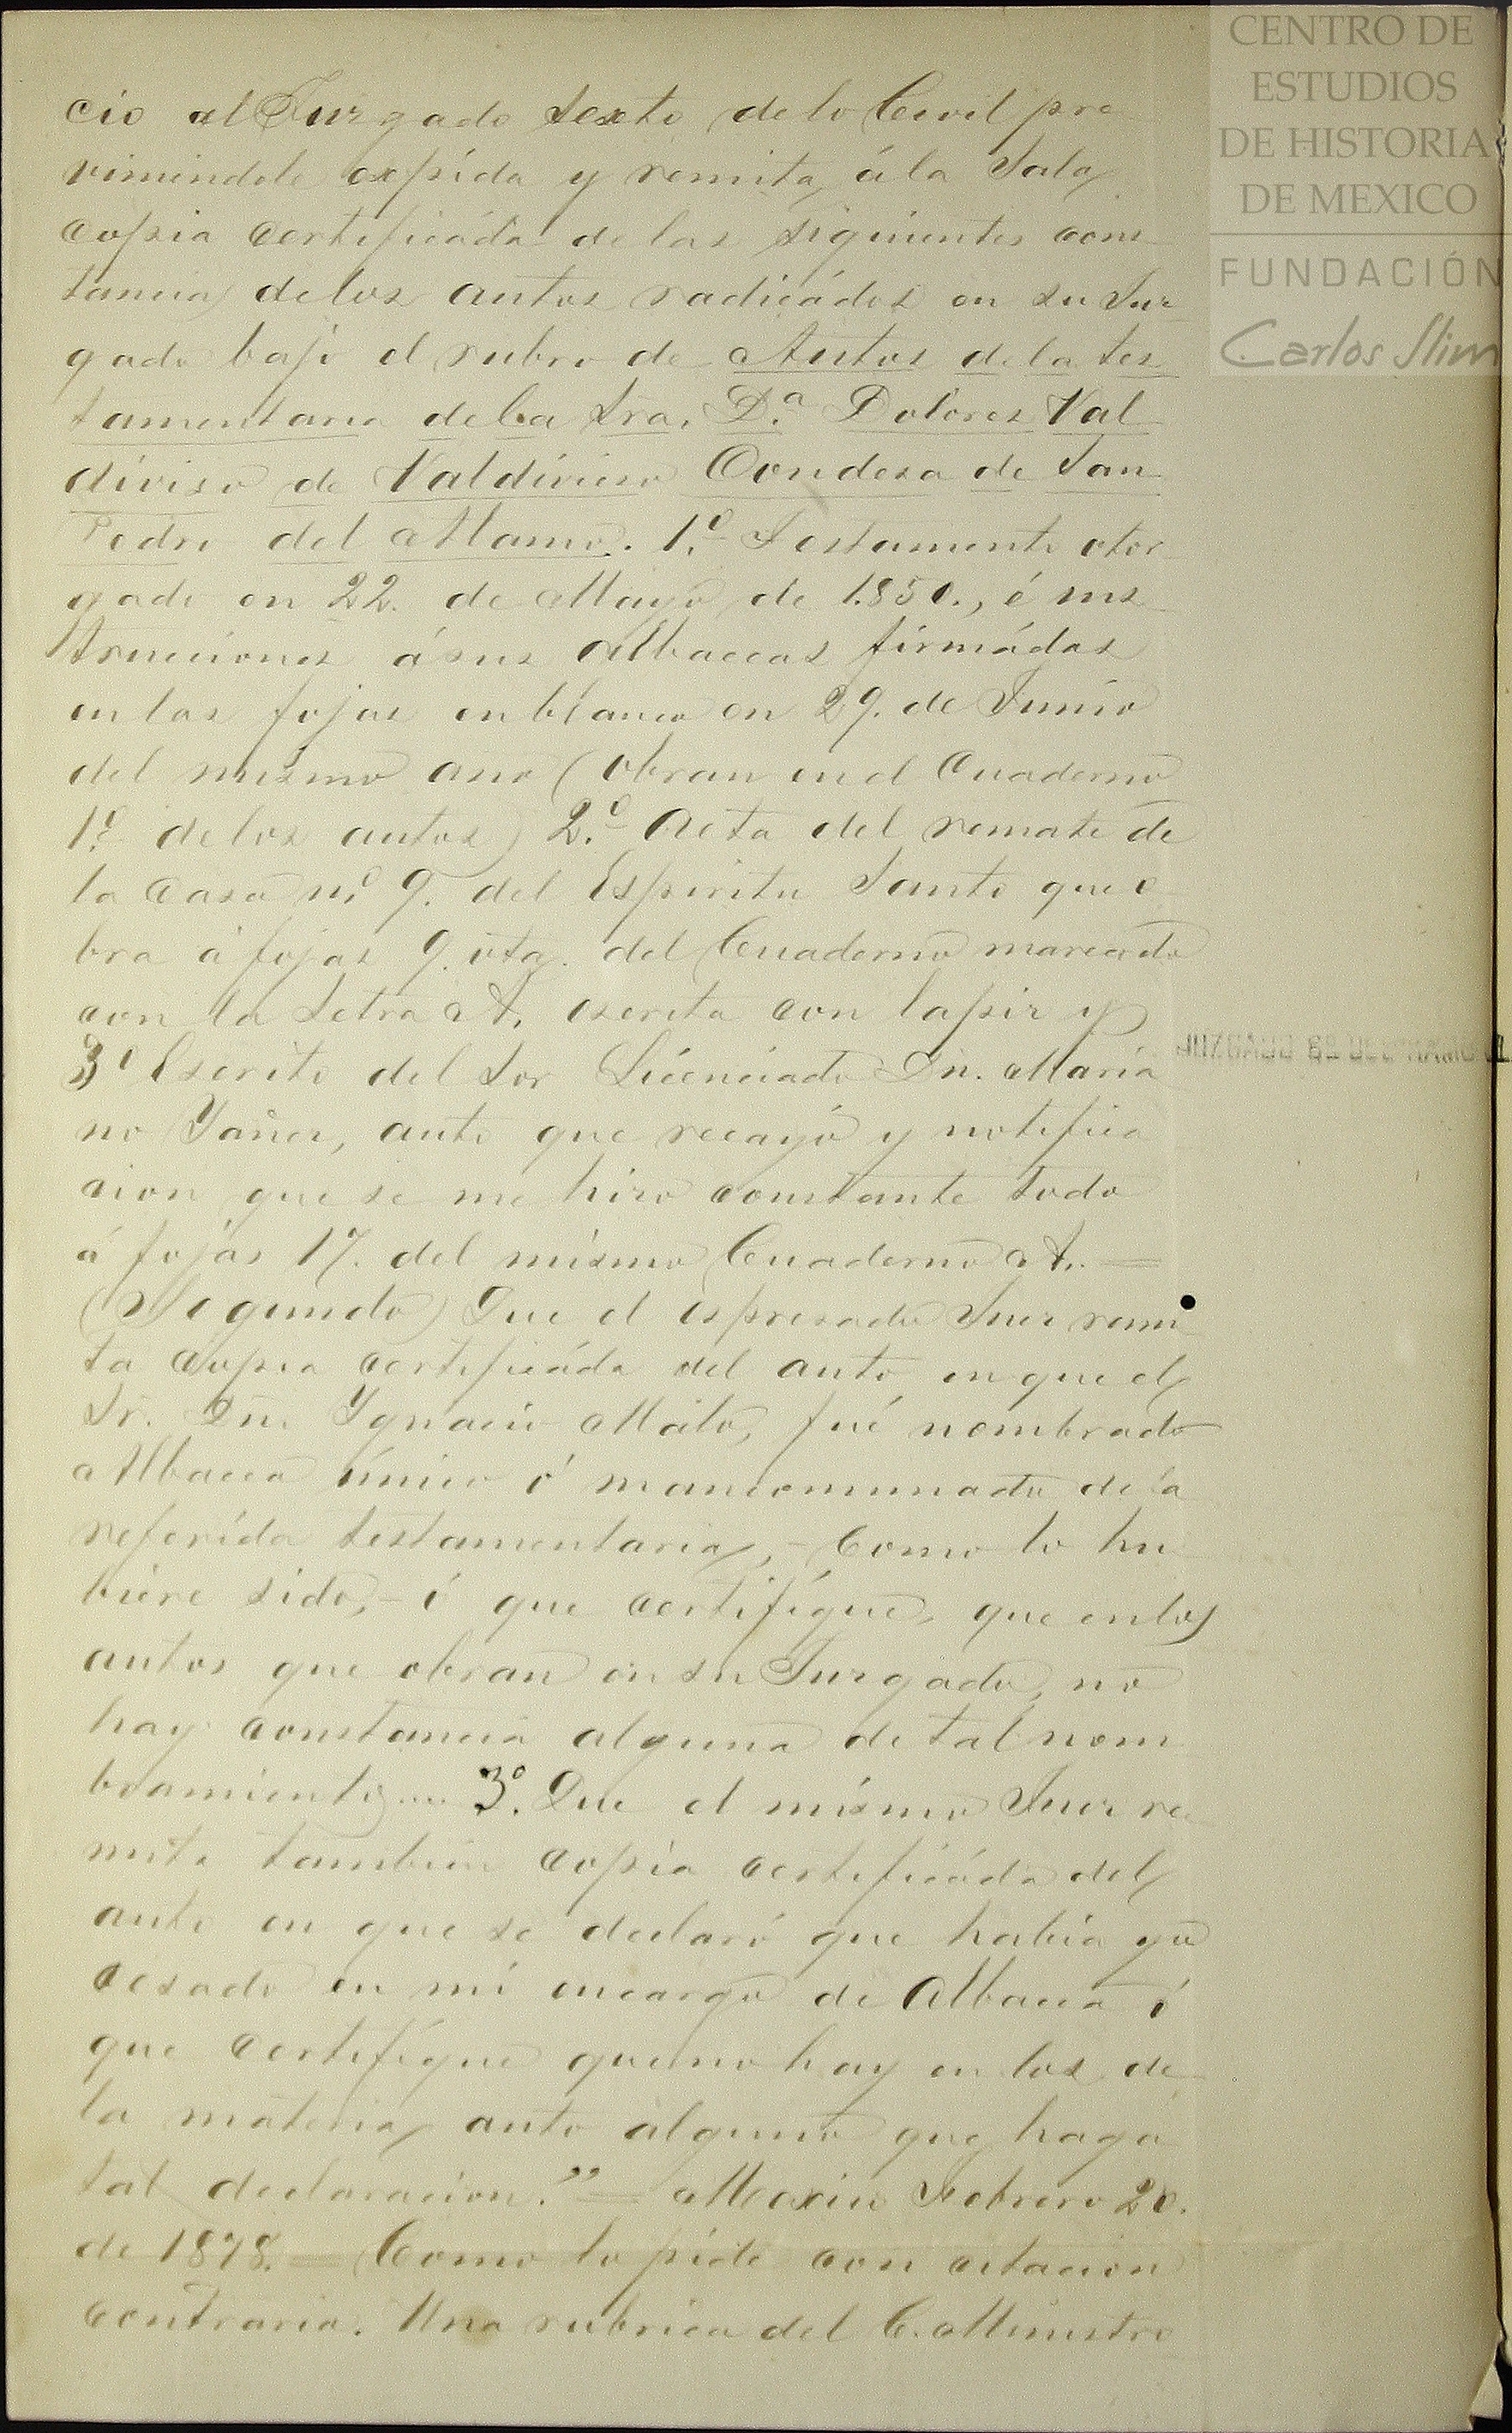 CENTRO DE
ESTUDIOS
DE HISTORIA
DE MEXICO
FUNDACIÓN
Carlos Slim
cio al Jurgado Sexto de lo Civil pre
vinindole expida y remita á la Sala
copia certificáda de las siguientes cons
tancia de los autos radicádos en su Jur
gado bajo el rubro de Autos de la tes
tamentaria de la Sra. D.a Dolores Val
diviso de Valdivieso Condesa de San
Pedro del Alamo. 1.º Testamento otor
gado en 22. de Mayo de 1.850., é ins
trucciones á sus Albaceas firmádas
en las fojas en blanco en 29. de Junio
del mismo ano (obran en el Cuaderno
1.º de los autos) 2.º Acta del remate de
la casa n.º 9. del Espiritu Santo que o
bra á fojas 9. vta. del Cuaderno marcado
con la Letra A. escrita con lapir y
3º Escrito del Sor Licenciado Dn. Maria
no Yañer, auto que recayó y notifica
cion que se me hiro constante todo
á fojas 17. del mismo Cuaderno A. =
(Segundo) Que el espresado Juer remi
ta copia certificáda del auto en que el
Sr. Dn. Ygnacio Malo, fué nombrado
Albacea único ó mancomunado de la
referida testamentaria, - como lo hu
biere sido, - ó que certifique, que en los
autos que obran en su Jurgado, no
hay constancia alguna de tal nom
bramiento = 3.º Que el mismo Juer re
mita tambien copia certificáda del
auto en que se declaró que habia ya
cesado en mi encargo de Albacea ó
que certifique que no hay en los de
la materia auto alguno que haga
tal declaracion." = Mexico Febrero 20.
de 1878. = Como lo pide con citacion
contraria. Una rubrica del C. Ministro
JUZGADO 6º DEL RAMO